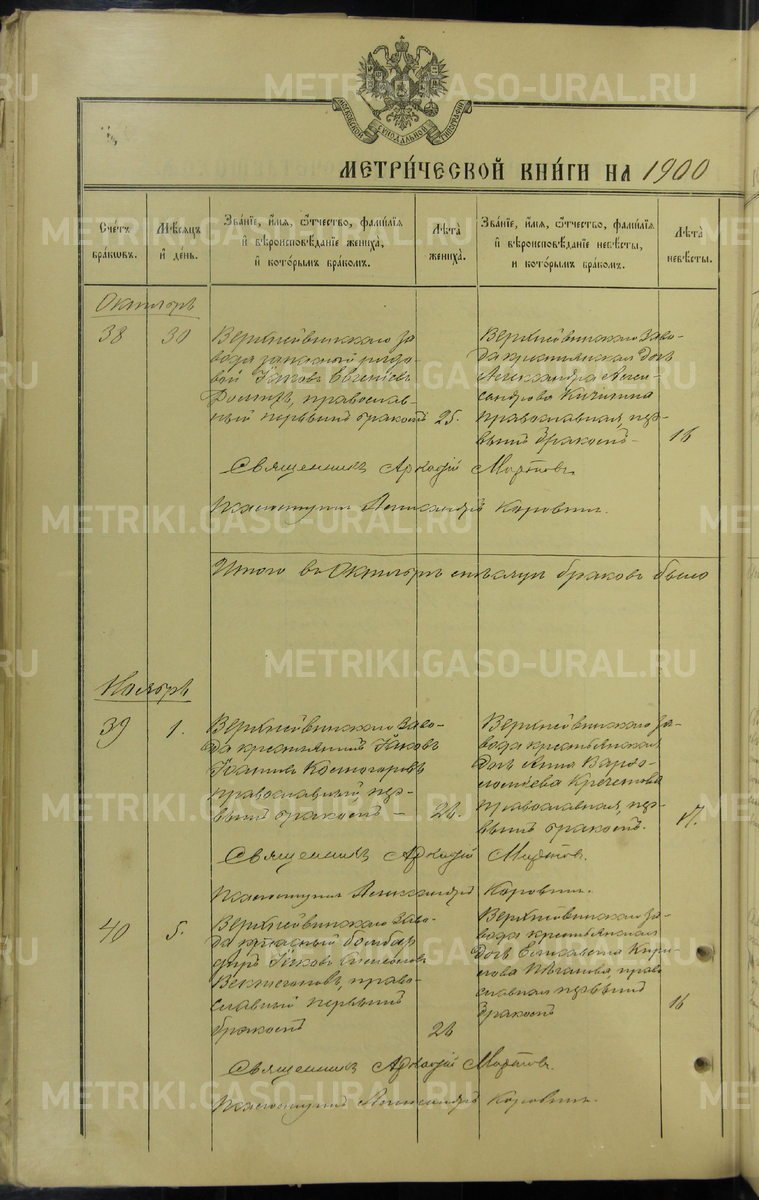 МОСКОВСКОЙ СѴНОДАЛЬНОЙ ТИПОГРАФІИ
МЕТРИ́ЧЕСКОЙ КНИ́ГИ НА 1900
Сче́тъ бра́кωвъ.
Мѣ́сяцъ и҆ де́нь.
Зва́нїе, и҆́мя, ѻ҆́тчество, фами́лїя и҆ вѣроисповѣ́данїе жениха̀, и҆ кото́рымъ бра́комъ.
Лѣ́та жениха̀.
Зва́нїе, и҆́мя, ѻ҆́тчество, фами́лїя и҆ вѣроисповѣ́данїе невѣ́сты, и҆ кото́рымъ бра́комъ.
Лѣ́та невѣ́сты.
Октябрь
38
30
Верхнейвинскаго за-
вода запасный рядо-
вой Іаковъ Евгеніевъ
православ-
ный первымъ бракомъ
25.
Верхнейвинскаго заво-
да крестьянская дочь
Александра Алек-
сандрова Кичигина
православная, пер-
вымъ бракомъ
16
Священникъ Аркадій
Псаломщикъ Александръ Коровинъ.
Итого въ Октябрѣ мѣсяцѣ браковъ было
Ноябрь
39
1.
Верхнейвинскаго заво-
да крестьянинъ Іаковъ
Іоанновъ Костоготовъ
православный пер-
вымъ бракомъ —
Верхнейвинскаго за-
вода крестьянская
дочь Анна Варѳо-
ломеева
православная, пер-
вымъ бракомъ.
17.
Священникъ Аркадій
Псаломщикъ Александръ Коровинъ.
40
5.
Верхнейвинскаго заво-
да запасный бомбар
диръ Іаковъ Симеоновъ
право-
славный первымъ
бракомъ
Верхнейвинскаго за-
вода крестьянская
дочь Елисавета Кири-
лова право
славная первымъ
бракомъ
16
Священникъ Аркадій
Псаломщикъ Александръ Коровинъ.
METRIKI.GASO-URAL.RU